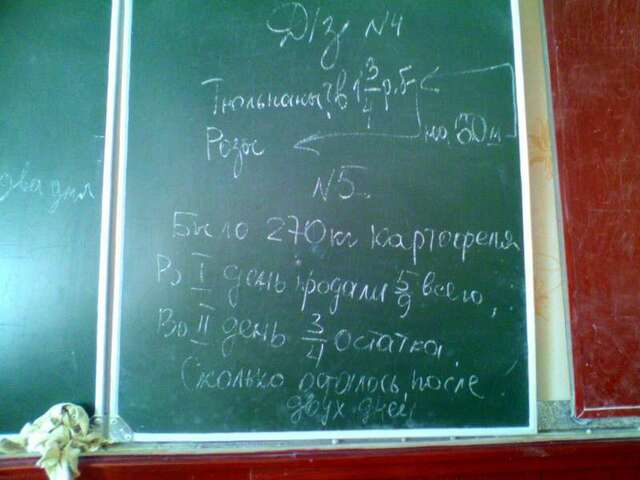 Д/з N4
Тюльпаны ? в 1 3/4 р. б
Розы на 60
N5
Было 270 кг картофеля
Во I день продали 5/9 всего,
Во II день 3/4 остатка.
Сколько осталось после
двух дней
два дня